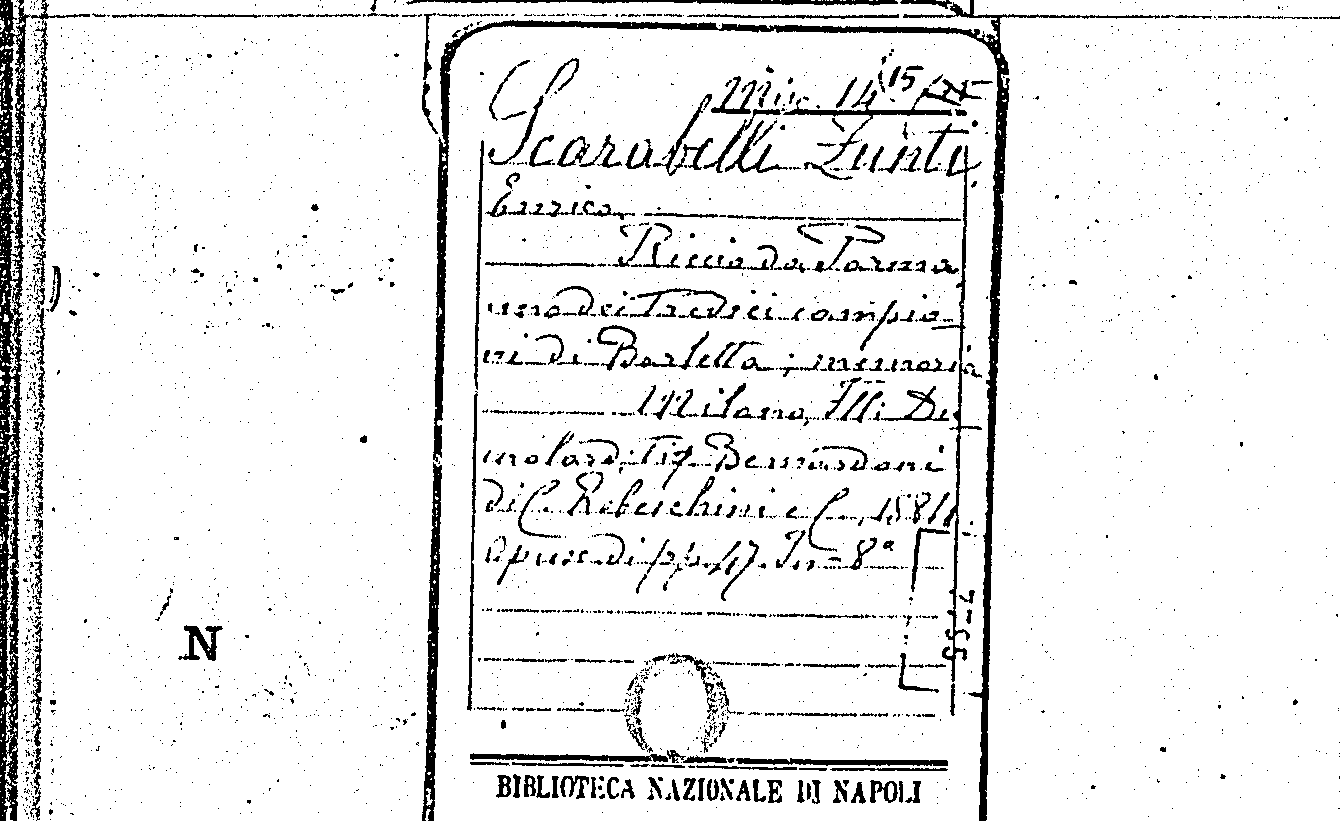 Misc. 14 (15
Scarabelli Zunti
Enrico
Riccio da Parma
uno dei Tredici campio-
ni di Barletta; memoria
Milano, Flli Du
molard, Tip. Bernardoni
di C. Rebeschini e C., 1884.
Opusc. di pp. 47. In-8°
N
BIBLIOTECA NAZIONALE DI NAPOLI